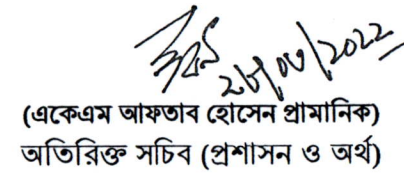 ২৮/০৩/2022
(একেএম আফতাব হোসেন প্রামানিক)
অতিরিক্ত সচিব (প্রশাসন ও অর্থ)